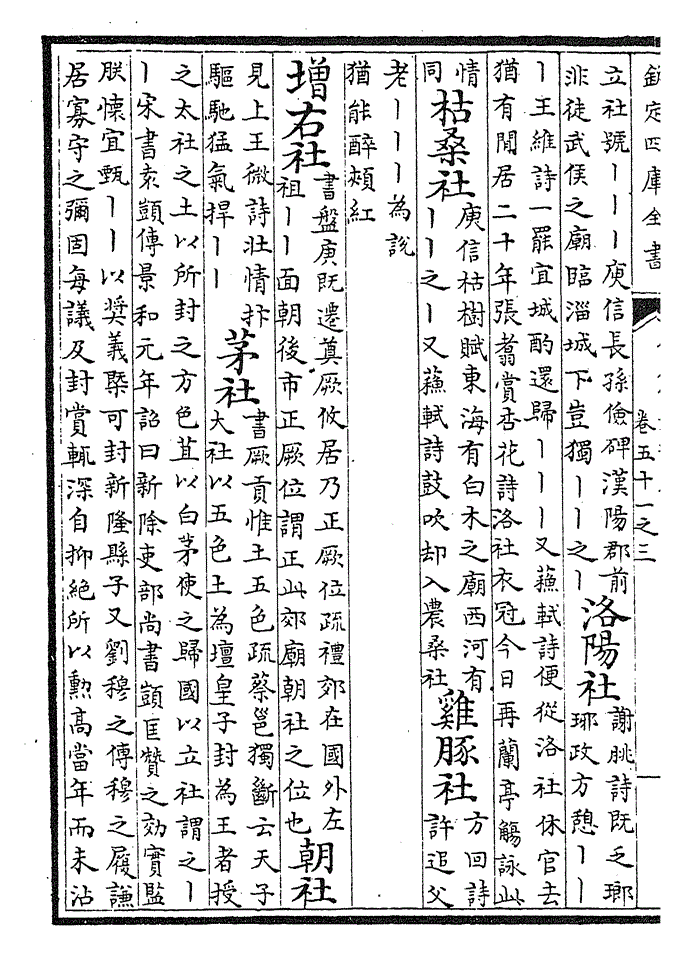 欽定四庫全書
卷五十一之三
立社號丨丨丨庾信長孫儉碑漢陽郡前
非徒武侯之廟臨淄城下豈獨丨丨之丨
洛陽社
謝朓詩既乏瑯
琊政方憩丨丨
丨王維詩一罷宜城酌還歸丨丨丨又蘇軾詩便從洛社休官去
猶有閒居二十年張翥賞杏花詩洛社衣冠今日再蘭亭觴詠此
情
同
枯桑社
庾信枯樹賦東海有白木之廟西河有
丨丨之丨又蘇軾詩鼓吹却入農桑社
雞豚社
方回詩
許追父
老丨丨丨為說
猶能醉頰紅
增右社
書盤庚既遷奠厥攸居乃正厥位疏禮郊在國外左
祖丨丨面朝後市正厥位謂正此郊廟朝社之位也
朝社
見上王微詩壯情抃
驅馳猛氣捍丨丨
茅社
書厥貢惟土五色疏蔡邕獨斷云天子
大社以五色土為壇皇子封為王者授
之太社之土以所封之方色苴以白茅使之歸國以立社謂之丨
丨宋書袁顗傳景和元年詔曰新除吏部尚書顗匡贊之効實監
朕懷宜甄丨丨以奨義槩可封新隆縣子又劉穆之傳穆之履謙
居寡守之彌固每議及封賞輒深自抑絶所以勲高當年而未沾